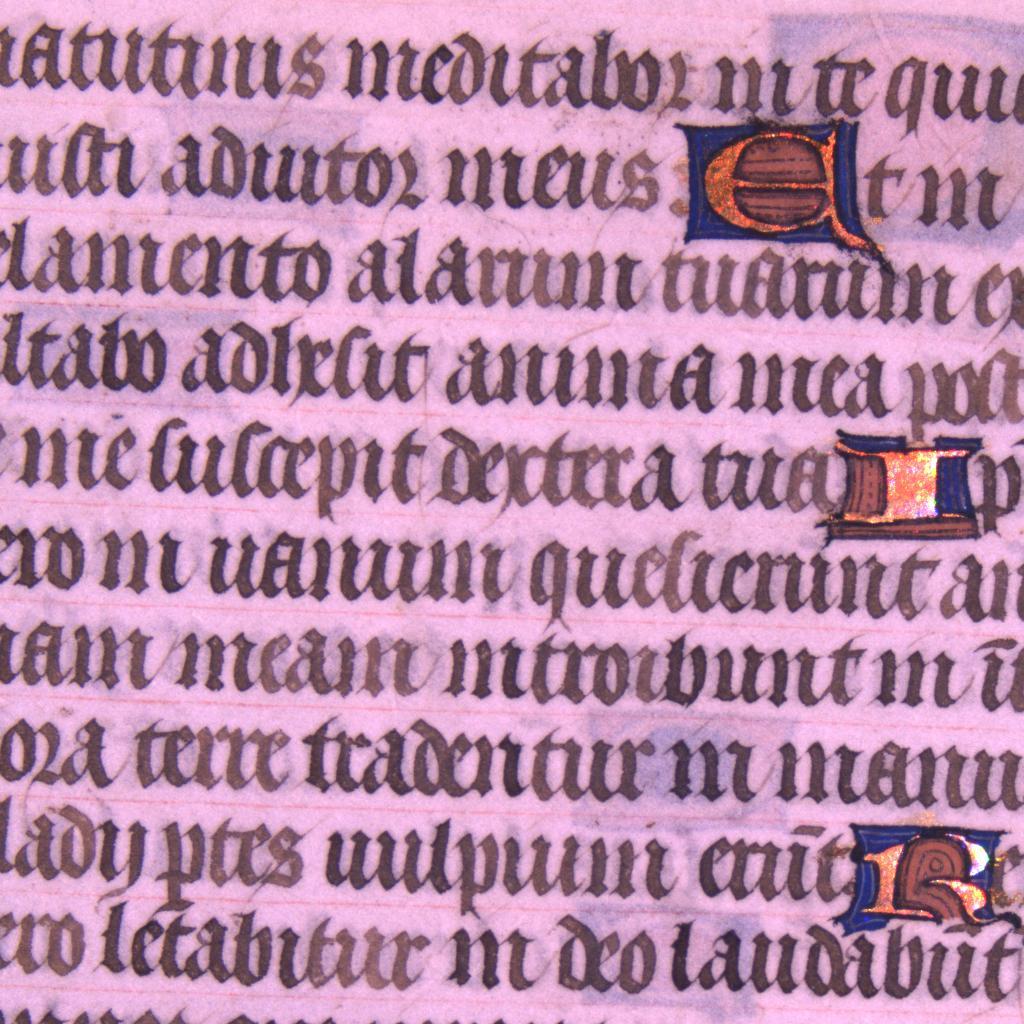 matutinis meditabor in te quia
fuisti adiutor meus Et in
uelamento alarum tuarum ex
ultabo adhesit anima mea post
me suscepit dextera tua Ip
ero in uanum quesierunt an
mam meam introibunt in īt
ora terre tradentur in manu
gladij ptes uulpium erūt Re
ero letabitur in deo laudabūt